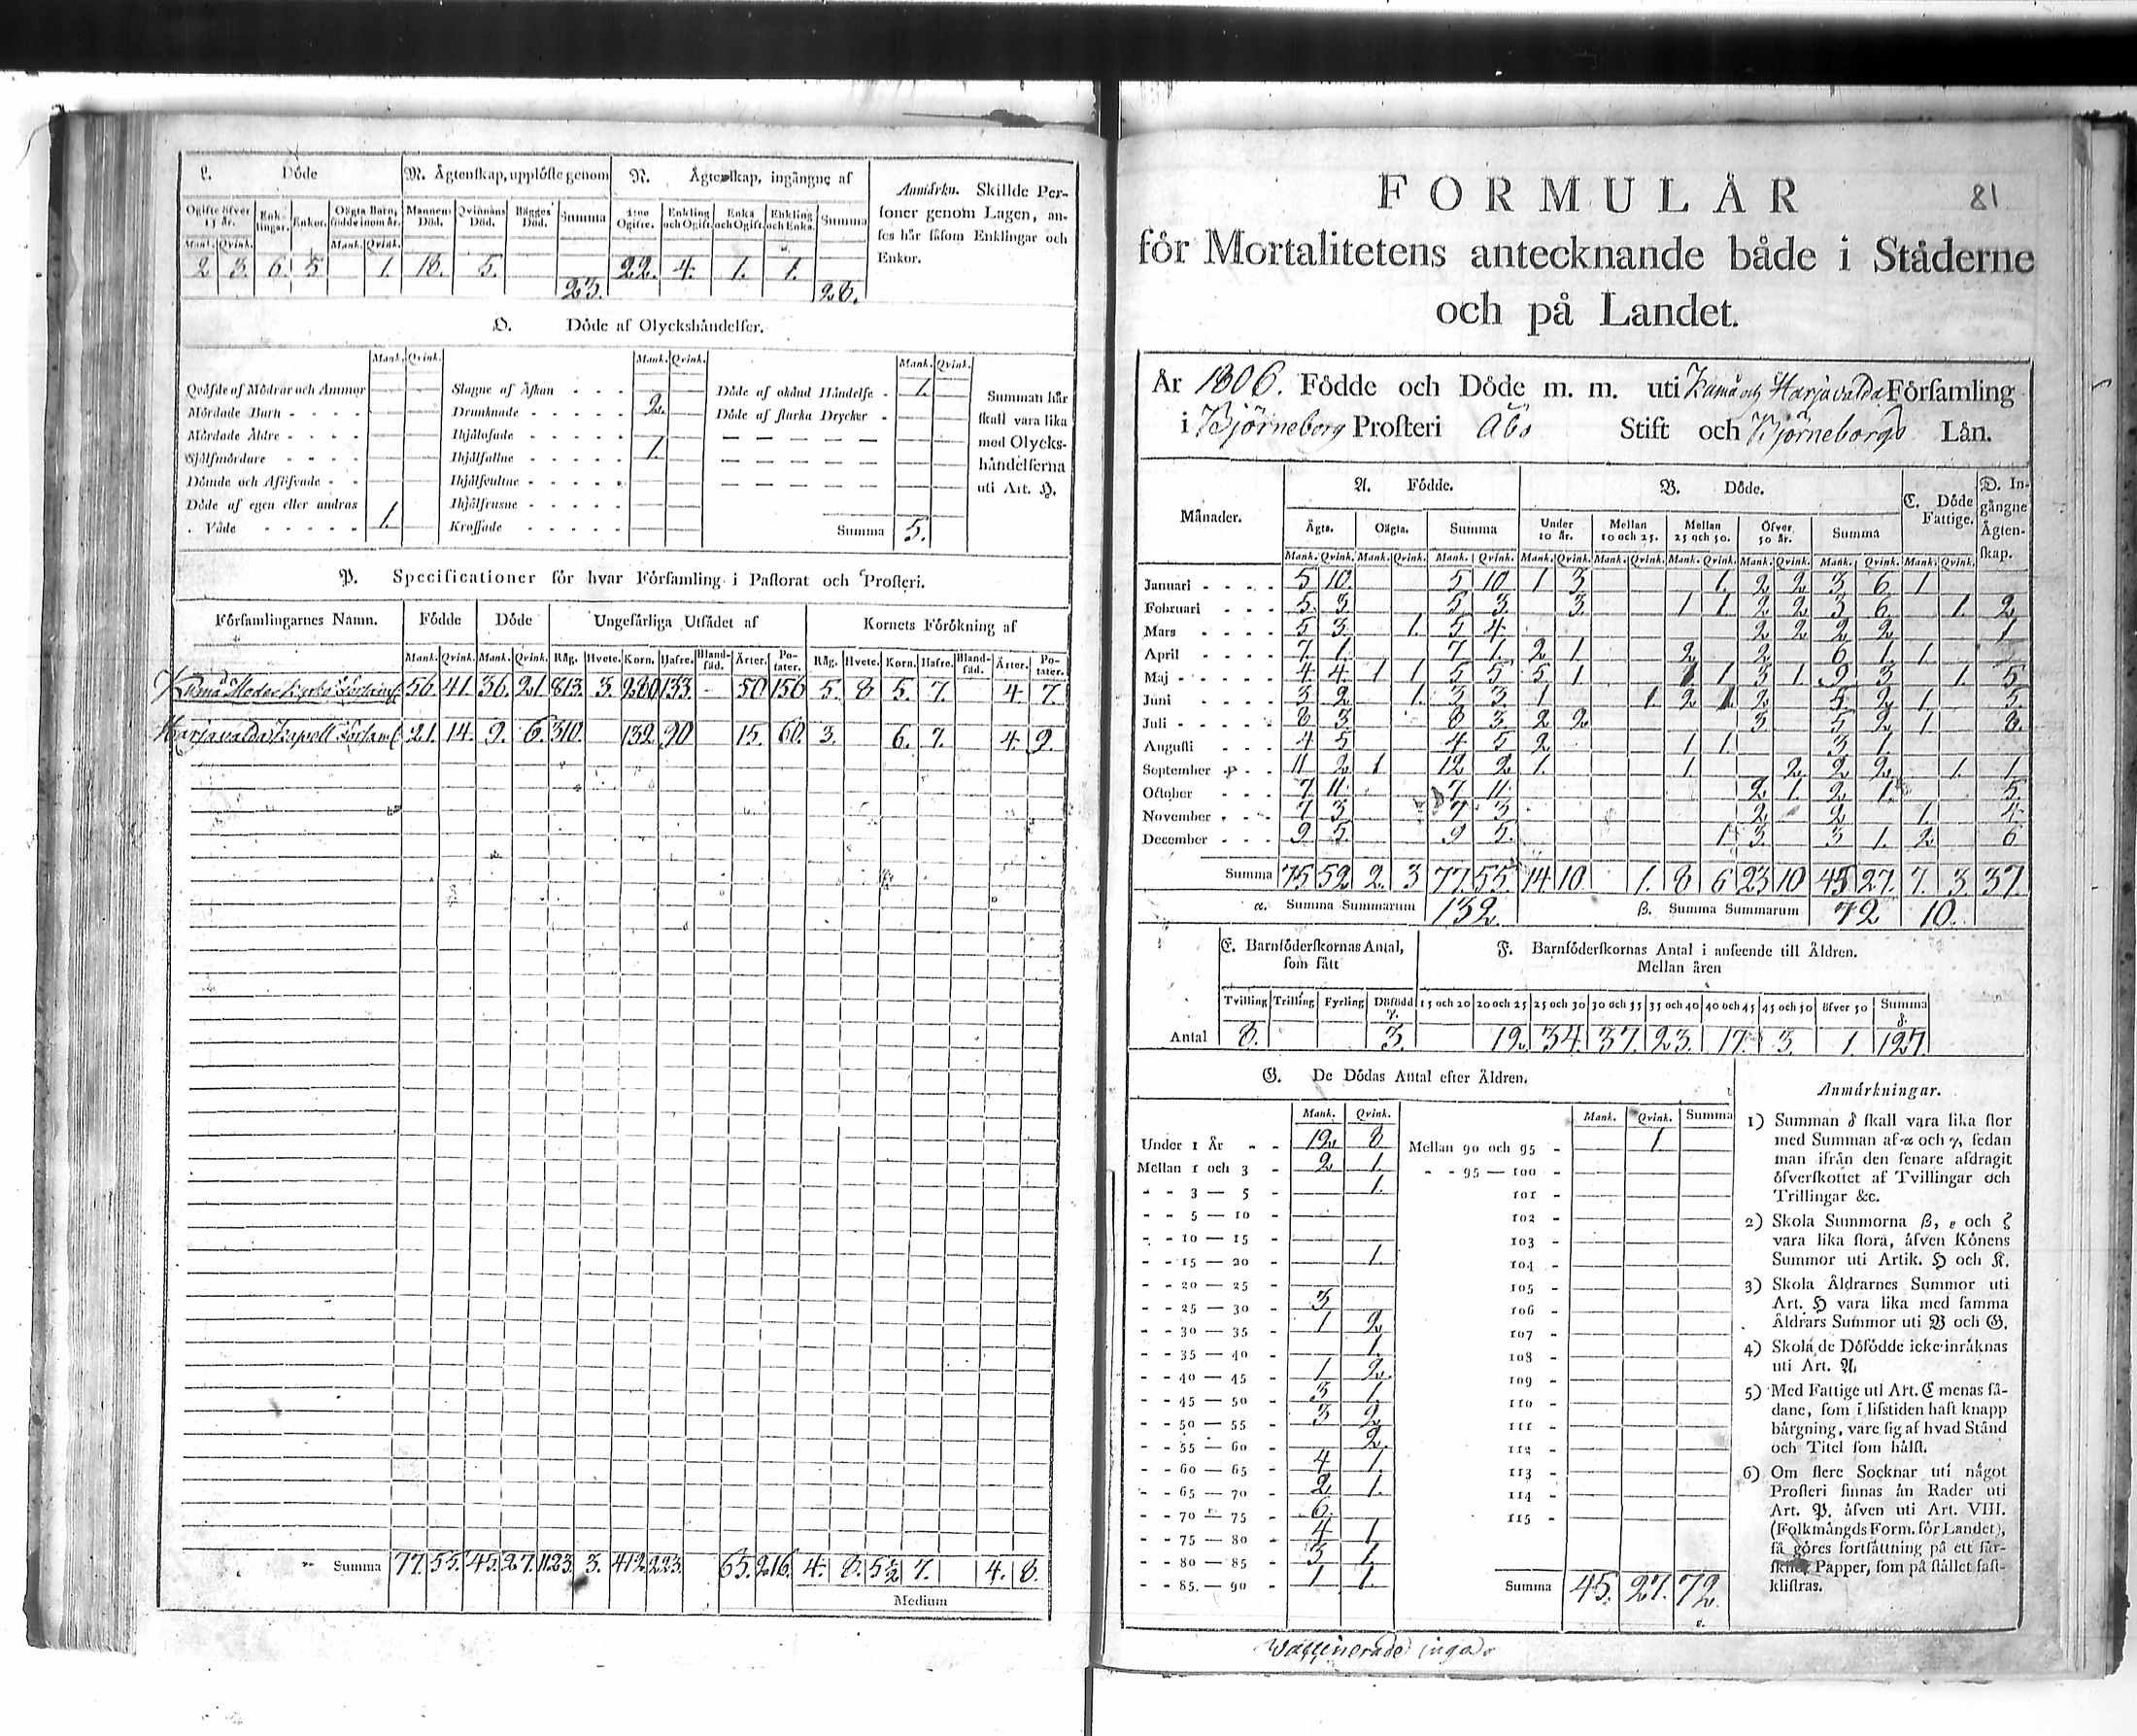 L. Döde
M. Ägtenskap, upplöste genom
N. Ägtenskap, ingångne af
Anmärkn. Skillde Personer
genom Lagen, anses
här såsom Enklingar och
Enkor.
Ogifte öfver 15 år. Enklingar. Enkor. Oägta Barn, födde inom år. Mannens Död. Qvinnans Död. Bägges Död. Summa 1:no Ogifte. Enkling och Ogift. Enka och Ogift. Enkling och Enka. Summa
Mank. Qvink. Mank. Qvink.
2 3. 6. 5 1. 18. 5. 22. 4. 1. 1.
23. 28.
O. Döde af Olyckshändelser.
Mank. Qvink. Mank. Qvink. Mank. Qvink.
Qväfde af Mödrar och Ammor
Mördade Barn
Mördade Äldre
Självmördare
Dömde och Aflifvade
Döde af egen eller andras
Våde 1.
Slagne af Åskan
Drunknade 2.
Ihjälosade
Ihjälfallne 1.
Ihjälsvultne
Ihjälfrusne
Krossade
Döde af okänd Händelse 1.
Döde af starka Drycker
Summa 5.
Summan här
skall vara lika
med Olyckshändelserna
uti Art. H.
P. Specificationer för hvar Församling i Pastorat och Prosteri.
Församlingarnes Namn. Födde Döde Ungefärliga Utsädet af Kornets Förökning af
Mank. Qvink. Mank. Qvink. Råg. Hvete. Korn. Hafre. Blandsäd. Ärter. Potater. Råg. Hvete. Korn. Hafre. Blandsäd. Ärter. Potater.
Kumå Moderkyrko Församl. 56 41. 36. 21. 813. 3. 280 133. – 50 156 5. 8 5. 7. 4. 7.
Harjavalda Kapell Församl. 21. 14. 9. 6. 310. 132. 90 15. 60. 3. 6. 7. 4. 9.
Summa 77. 55. 45. 27. 1123. 3. 412. 223. 65. 216. 4. 8. 5½ 7. 4. 8.
Medium
81
FORMULÄR
för Mortalitetens antecknande både i Städerne
och på Landet.
År 1806. Födde och Döde m. m. uti Kumå och Harjavalda Församling
i Björneborg Prosteri Åbo Stift och Björneborgs Län.
Månader. A. Födde. B. Döde. C. Döde Fattige. D. Ingångne Ägtenskap.
Ägta. Oägta. Summa Under 10 år. Mellan 10 och 25. Mellan 25 och 50. Öfver 50 år. Summa
Mank. Qvink. Mank. Qvink. Mank. Qvink. Mank. Qvink. Mank. Qvink. Mank. Qvink. Mank. Qvink. Mank. Qvink. Mank. Qvink.
Januari 5 10. 5 10 1 3 1. 2 2 3 6. 1
Februari 5 3 5 3 3. 1 1 2 2 3 6 1. 2
Mars 5 3 1. 5 4 2 2 2 2 1
April 7 1. 7 1. 2 1. 2 2 6 1. 1
Maj 4 4 1 1 5 5 5 1 1 1 3 1. 9 3 1. 5
Juni 3 2 1. 3 3. 1 1. 2 1. 2 5 2 1 5.
Juli 8 3 8 3 2 2 3 5 2 1. 8.
Augusti 4 5 4 5 2 1 1. 3 1.
September 11 2 1 12 2 1. 1 2 2 2 1. 1
October 7 11. 7 11. 2 1. 2 1. 5
November 7 3 7 3 2 2 1. 4
December 9 5. 9 5. 1. 3. 3 1. 2 6
Summa 75 52 2. 3 77. 55. 14 10. 1. 8 6 23 10 45 27. 7. 3. 37.
α. Summa Summarum 132. β. Summa Summarum 72 10.
E. Barnföderskornas Antal, som fått
F. Barnföderskornas Antal i anseende till Åldren.
Mellan åren
Tvilling Trilling Fyrling Dödfödd γ. 15 och 20 20 och 25 25 och 30 30 och 35 35 och 40 40 och 45 45 och 50 öfver 50 Summa δ.
Antal 8. 3. 12. 34. 37. 23. 17. 3. 1. 127
G. De Dödas Antal efter Åldren.
Mank. Qvink. Mank. Qvink. Summa
Under 1 År 12 8 Mellan 90 och 95 1
Mellan 1 och 3 2 1. 95 — 100
3 — 5 1. 101
5 — 10 102
10 — 15 103
15 — 20 1. 104
20 — 25 105
25 — 30 3 106
30 — 35 1 2 107
35 — 40 1. 108
40 — 45 1 2. 109
45 — 50 3 1. 110
50 — 55 3 2 111
55 — 60 2. 112
60 — 65 4 1 113
65 — 70 2 1. 114
70 — 75 6. 115
75 — 80 4 1
80 — 85 3 1.
85. — 90 1 1. Summa 45. 27. 72.
ε.
Anmärkningar.
1) Summan δ skall vara lika stor
med Summan af α och γ, sedan
man ifrån den senare afdragit
öfverskottet af Tvillingar och
Trillingar &c.
2) Skola Summorna β, ε och ζ
vara lika stora, äfven Könens
Summor uti Artik. H och K.
3) Skola Åldrarnes Summor uti
Art. H vara lika med samma
Åldrars Summor uti B och G.
4) Skola de Döfödde icke inräknas
uti Art. A.
5) Med Fattige uti Art. C menas sådane,
som i lifstiden haft knapp
bärgning, vare sig af hvad Stånd
och Titel som hälst.
6) Om flere Socknar uti något
Prosteri finnas än Rader uti
Art. P. äfven uti Art. VIII.
(Folkmängds Form. för Landet),
så göres fortsättning på ett särskilt
Papper, som på stället fastklistras.
Waccinerade inga